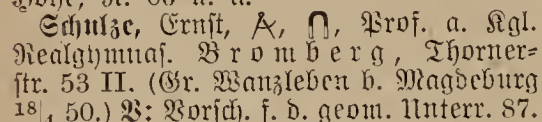 Schulze, Ernst, Prof. a. Kgl.
Realgymnas. Bromberg, Thorner=
str. 53 II. (Gr. Wanzleben b. Magdeburg
18/4 50.) V: Vorsch. f. d. geom. Unterr. 87.